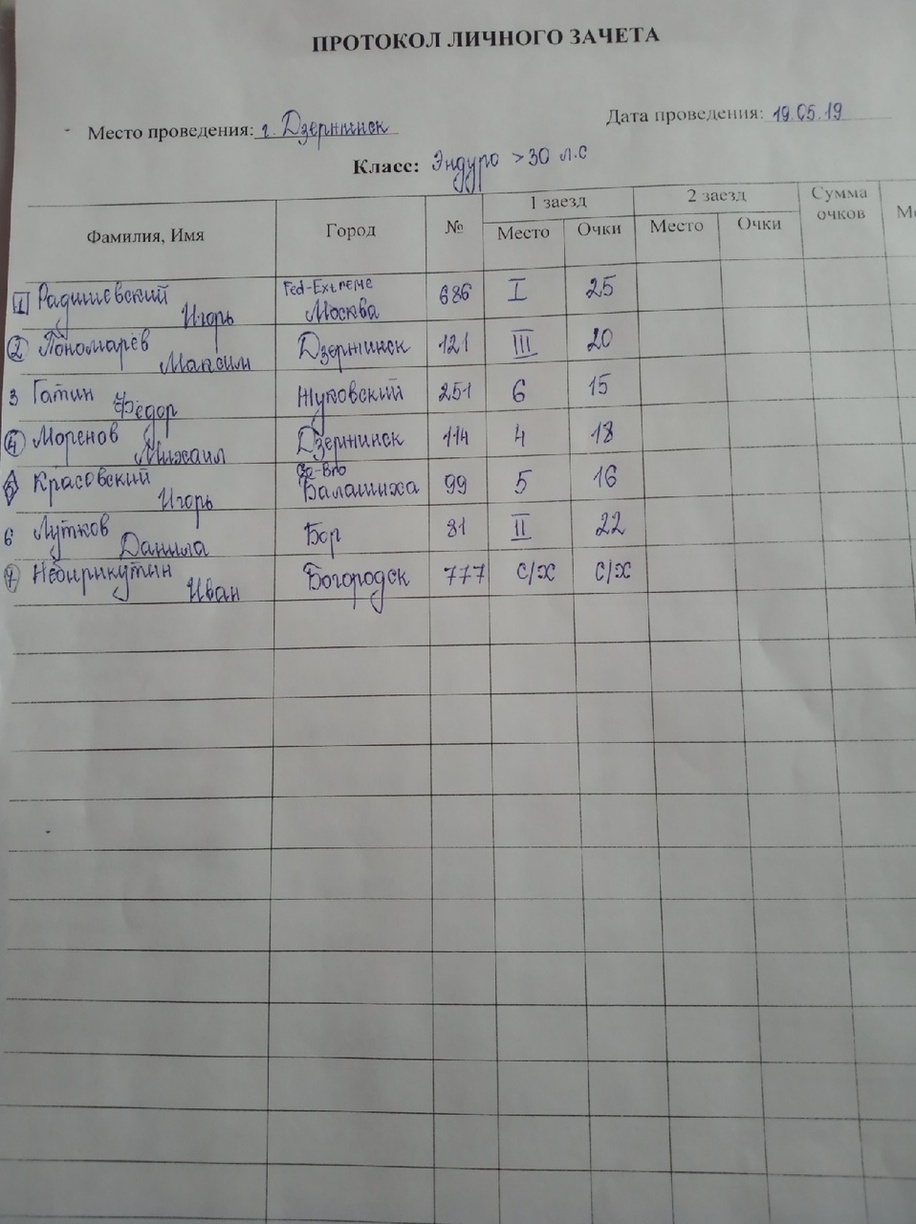 ПРОТОКОЛ ЛИЧНОГО ЗАЧЕТА
Место проведения: г. Дзержинск Дата проведения: 19.05.19
Класс: Эндуро >30 л.с
Фамилия, Имя Город № 1 заезд 2 заезд Сумма очков
Место Очки Место Очки
1 Радишевский Игорь Fed-Extreme Москва 686 I 25
2 Пономарёв Максим Дзержинск 121 III 20
3 Гатин Фёдор Жуковский 251 6 15
4 Моренов Михаил Дзержинск 114 4 18
5 Красовский Игорь Балашиха 99 5 16
6 Лутков Данила Бор 81 II 22
7 Иван Богородск 777 с/х с/х